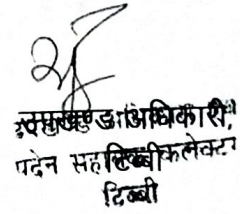 उपखण्ड अधिकारी,
पदेन सह कलेक्टर
टिब्बी